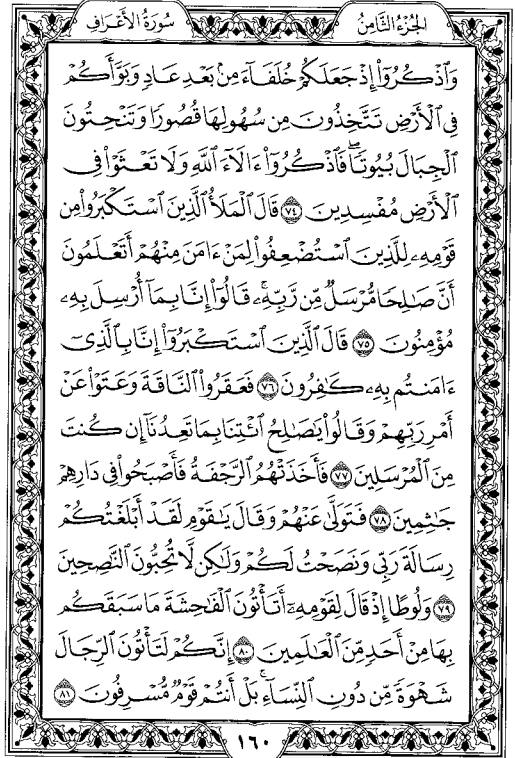 الجزء الثامن
سورة الأعراف
وَٱذْكُرُوٓا۟ إِذْ جَعَلَكُمْ خُلَفَآءَ مِنۢ بَعْدِ عَادٍ وَبَوَّأَكُمْ
فِى ٱلْأَرْضِ تَتَّخِذُونَ مِن سُهُولِهَا قُصُورًا وَتَنْحِتُونَ
ٱلْجِبَالَ بُيُوتًا ۖ فَٱذْكُرُوٓا۟ ءَالَآءَ ٱللَّهِ وَلَا تَعْثَوْا۟ فِى
ٱلْأَرْضِ مُفْسِدِينَ ٧٤ قَالَ ٱلْمَلَأُ ٱلَّذِينَ ٱسْتَكْبَرُوا۟ مِن
قَوْمِهِۦ لِلَّذِينَ ٱسْتُضْعِفُوا۟ لِمَنْ ءَامَنَ مِنْهُمْ أَتَعْلَمُونَ
أَنَّ صَٰلِحًا مُّرْسَلٌ مِّن رَّبِّهِۦ ۚ قَالُوٓا۟ إِنَّا بِمَآ أُرْسِلَ بِهِۦ
مُؤْمِنُونَ ٧٥ قَالَ ٱلَّذِينَ ٱسْتَكْبَرُوٓا۟ إِنَّا بِٱلَّذِىٓ
ءَامَنتُم بِهِۦ كَٰفِرُونَ ٧٦ فَعَقَرُوا۟ ٱلنَّاقَةَ وَعَتَوْا۟ عَنْ
أَمْرِ رَبِّهِمْ وَقَالُوا۟ يَٰصَٰلِحُ ٱئْتِنَا بِمَا تَعِدُنَآ إِن كُنتَ
مِنَ ٱلْمُرْسَلِينَ ٧٧ فَأَخَذَتْهُمُ ٱلرَّجْفَةُ فَأَصْبَحُوا۟ فِى دَارِهِمْ
جَٰثِمِينَ ٧٨ فَتَوَلَّىٰ عَنْهُمْ وَقَالَ يَٰقَوْمِ لَقَدْ أَبْلَغْتُكُمْ
رِسَالَةَ رَبِّى وَنَصَحْتُ لَكُمْ وَلَٰكِن لَّا تُحِبُّونَ ٱلنَّٰصِحِينَ
٧٩ وَلُوطًا إِذْ قَالَ لِقَوْمِهِۦٓ أَتَأْتُونَ ٱلْفَٰحِشَةَ مَا سَبَقَكُم
بِهَا مِنْ أَحَدٍ مِّنَ ٱلْعَٰلَمِينَ ٨٠ إِنَّكُمْ لَتَأْتُونَ ٱلرِّجَالَ
شَهْوَةً مِّن دُونِ ٱلنِّسَآءِ ۚ بَلْ أَنتُمْ قَوْمٌ مُّسْرِفُونَ ٨١
١٦٠